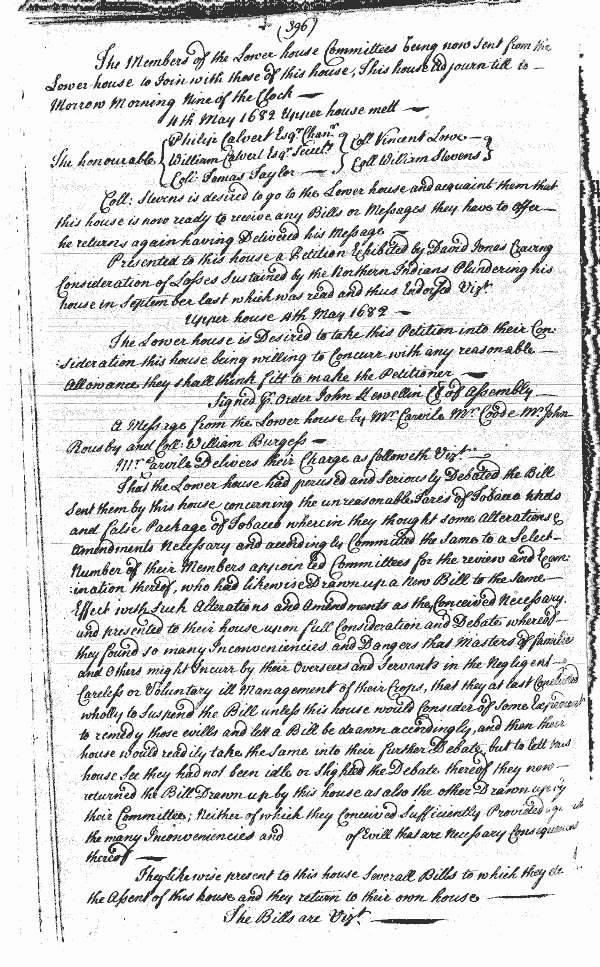 (396)
The Members of the Lower house Committees being now sent from the
Lower house to Join with those of this house, This house adjourn till to
Morrow Morning Nine of the Clock —
4th May 1682 Upper house mett —
The honourable { Philip Calvert Esqr Chanr } Coll Vincent Lowe —
William Calvert Esqr Secrety } Coll William Stevens
Coll: Tomas Taylor —
Coll: Stevens is desired to go to the Lower house and acquaint them that
this house is now ready to receive any Bills or Messages they have to offer —
he returns again having Delivered his Message
Presented to this house a Petition Exhibited by David Jones Craving
Consideration of Losses Sustained by the Northern Indians Plundering his
house in September last which was read and thus Endorsed Vizt.
Upper house 4th May 1682 —
The Lower house is Desired to take this Petition into their Con:
:sideration this house being willing to Concurr with any reasonable —
Allowance they shall think fitt to make the Petitioner —
Signed p. Order John Llewellin Cl of Assembly —
A Message from the Lower house by Mr. Carvile Mr. Coode Mr. John
Rousby and Coll: William Burgess —
Mr. Carvile Delivers their Charge as followeth Vizt. —
That the Lower house had perused and Seriously Debated the Bill
Sent them by this house concerning the unreasonable Tares of Tobacco
and false Package of Tobacco wherein they thought some Alterations &
Amendments Necessary and accordingly Committed the same to a Select —
Number of their Members appointed Committees for the review and Exam:
:ination thereof, who had likewise Drawn up a New Bill to the Same —
Effect with Such Alterations and Amendments as they Conceived Necessary.
and presented to their house upon full Consideration and Debate whereof —
they found so many Inconveniencies and Dangers that Masters of families
and Others might Incurr by their Overseers and Servants in the Negligent —
Careless or Voluntary ill Management of their Crops, that they at last Concluded
wholly to Suspend the Bill unless this house would Consider of Some Expedient
to remedy those evills and lett a Bill be drawn accordingly, and then their
house would readily take the Same into their further Debate, but to lett this
house See they had not been idle or Slighted the Debate thereof they now —
returned the Bill Drawn up by this house as also the other Drawn up by
their Committee; Neither of which they Conceived Sufficiently Provided
the many Inconveniencies and of Evill that are Necessary Consequences
thereof —
They Likewise present to this house Severall Bills to which they de
the Assent of this house and they return to their own house
The Bills are Vizt. —